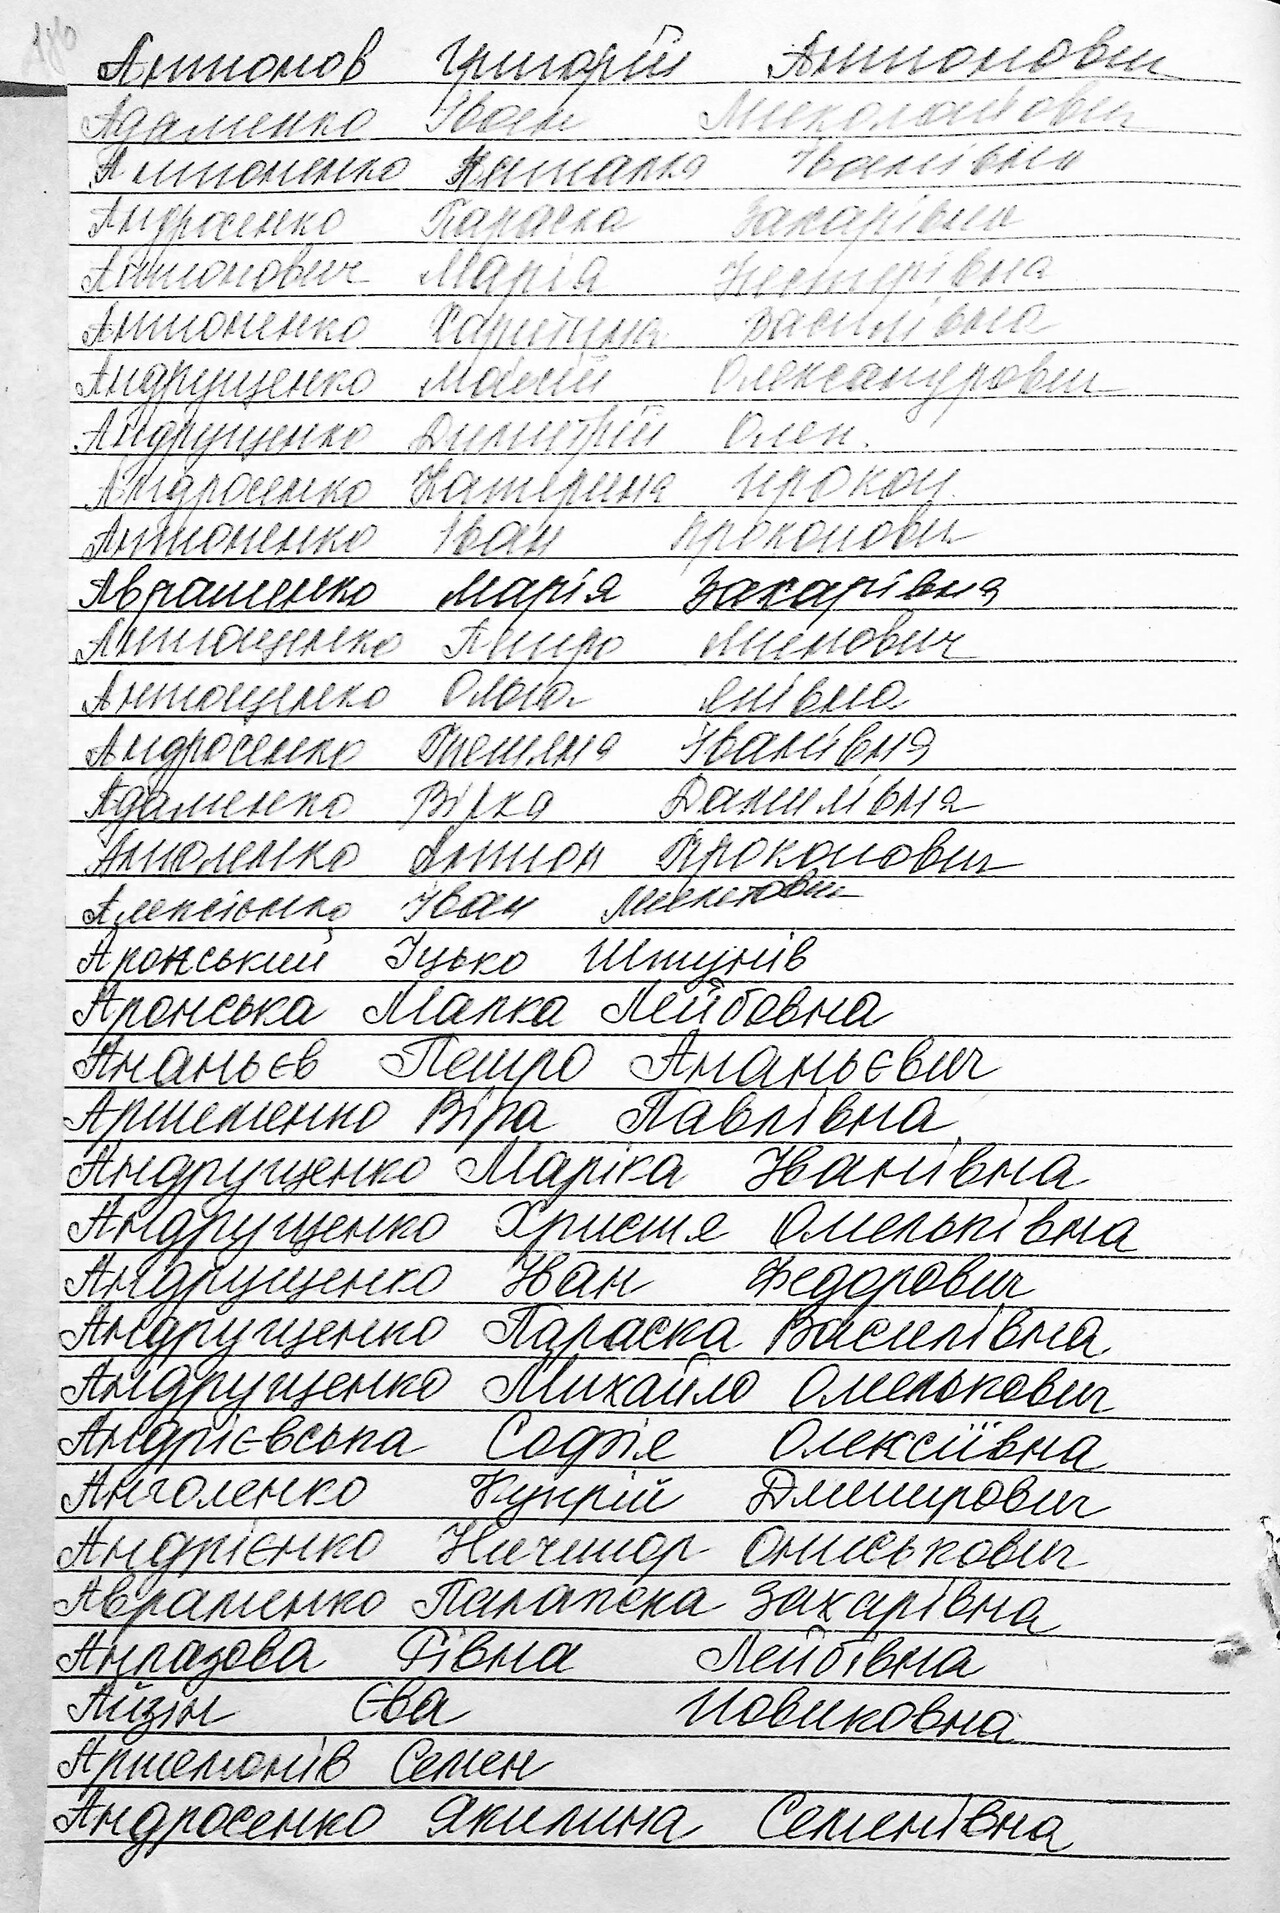 Антонов Григорій Антонович
Адаменко Іван Миколайович
Антоненко Наталка Іванівна
Андросенко Параска Захарівна
Антонович Марія Нестерівна
Антоненко Харитина Василівна
Андрущенко Мойсій Олександрович
Андрущенко Дмитрій Олек.
Андросенко Катерина Прокоп.
Антоненко Іван Прокопович
Авраменко Марія Захарівна
Антощенко Петро
Антощенко Ольга
Андросенко Тетяна Іванівна
Адаменко Вірка Данилівна
Антоненко Антон Прокопович
Алексієнко Іван Микитович
Аронський Іцько
Аронська Малка Лейбовна
Ананьєв Петро Ананьєвич
Артеменко Віра Павлівна
Андрущенко Маріка Іванівна
Андрущенко Христя Омельківна
Андрущенко Іван Федорович
Андрущенко Параска Василівна
Андрущенко Михайло Омелькович
Андрієвська Софія Олексіївна
Анголенко Купрій Дмитрович
Андрієнко Ничипор Ониськович
Авраменко Палажка Захарівна
Алмазова Рівна Лейбівна
Айзін Єва
Артемонів Семен
Андросенко Якилина Семенівна